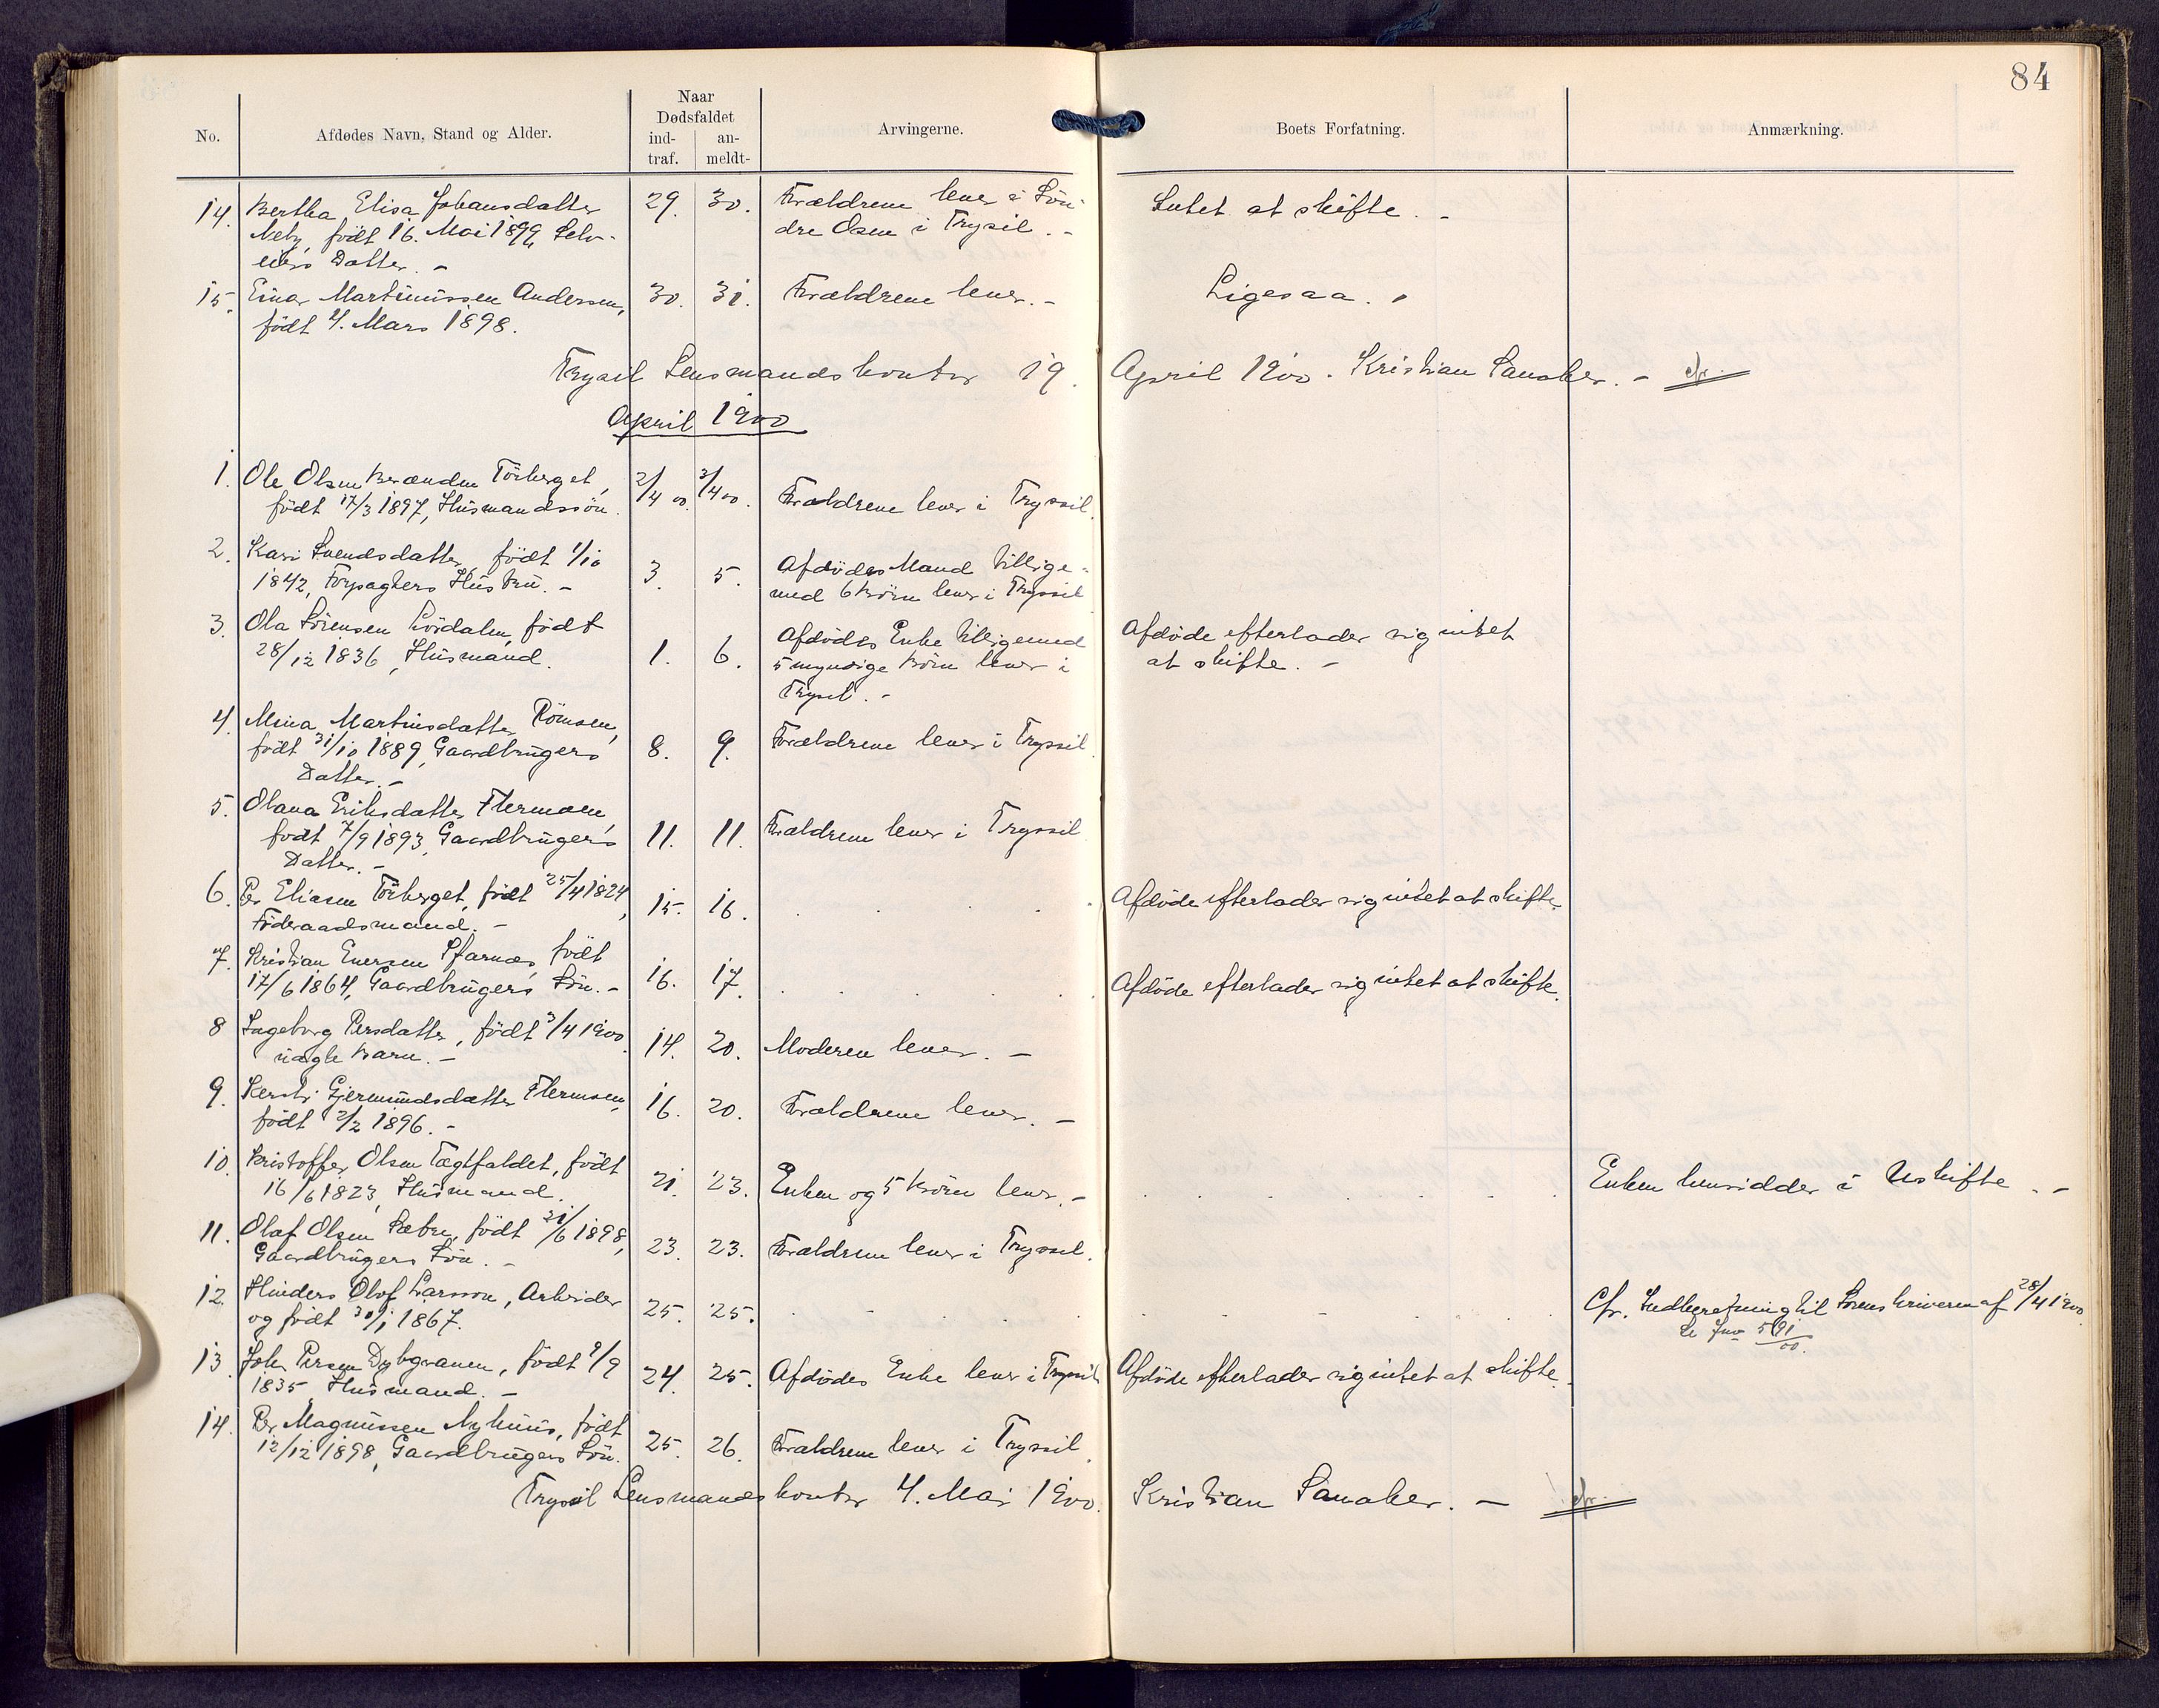 84
No.
Afdødes Navn, Stand og Alder.
Naar
Dødsfaldet
ind-
traf.
an-
meldt-
Arvingerne.
Boets Forfatning.
Anmærkning.
14. Bertha Elisa Johansdatter
Neby, født 16. Mai 1899, Selv-
eiers Datter. –
29. 30.
Forældrene lever i Søn-
dre Osen i Trysil. –
Intet at skifte. –
15. Einar Martinussen Andersen,
født 4. Mars 1898.
30. 31. Forældrene lever. – Ligesaa.
Trysil Lensmandskontor 19. April 1900. Kristian Sanaker. –
April 1900
1. Ole Olsen Brænden Törberget,
født 17/3 1897, Husmandssön.
2/4 00. 3/4 00. Forældrene lever i Trysil.
2. Kari Svendsdatter, født 1/10
1842, Husfru. –
3. 5.
Afdødes Mand tillige-
med 6 Börn lever i Trysil
3. Ola Sörensen födt
28/12 1836, Husmand.
1. 6.
Afdödes Enke tilligemed
5 myndige Börn lever i
Trysil. –
Afdöde efterlader sig intet
at skifte. –
4. Mina Martinsdatter Römoen,
født 31/10 1889, Gaardbrugers
Datter. –
8. 9. Forældrene lever i Trysil
5. Olava Eriksdatter Flermoen,
født 7/9 1893, Gaardbrugers
Datter. –
11. 11. Forældrene lever i Trysil
6. Per Eliasen Törberget, født 25/4 1824,
Föderaadsmand. –
15. 16. Afdöde efterlader sig intet at skifte.
7. Kristian Enersen født
17/6 1864, Gaardbrugers Sön. –
16. 17. Afdöde efterlader sig intet at skifte.
8 Ingeborg Persdatter, født 3/4 1900
uægte Barn. –
14. 20. Moderen lever. –
9. Kersti Gjermundsdatter Flermoen,
født 2/2 1896. –
16. 20. Forældrene lever. –
10. Kristoffer Olsen Tægtfaldet, født
16/6 1823, Husmand.
21. 23. Enken og 5 Börn lever. –
Enken hensidder i Uskifte. –
11. Olaf Olsen Sætre, født 21/6 1898,
Gaardbrugers Sön. –
23. 23. Forældrene lever i Trysil.
12. Olof Larsson, Arbeider
og født 30/1 1867.
25. 25.
Cfr. Indberetning til Sorenskriveren af 28/4 1900
Se Jno 591/00.
13. Johs Persen Dybgranen, født 9/9
1835, Husmand. –
24. 25. Afdödes Enke lever i Trysil
Afdöde efterlader sig intet at skifte.
14. Per Magnussen Nyhuus, født
12/12 1898, Gaardbrugers Sön.
25. 26. Forældrene lever i Trysil.
Trysil Lensmandskontor 4. Mai 1900. Kristian Sanaker. –